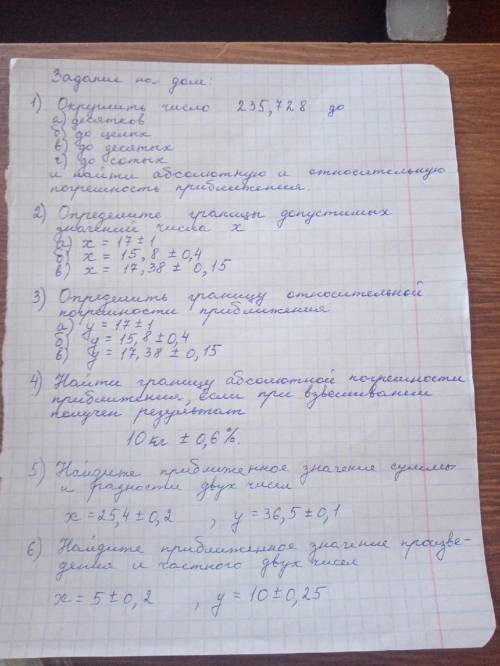 Задание на дом:
1) Округлить число 235,728 до
а) десятков
б) до целых
в) до десятых
г) до сотых
и найти абсолютную и относительную
погрешность приближения.
2) Определите границы допустимых
значений числа x
а) x = 17 ± 1
б) x = 15,8 ± 0,4
в) x = 17,38 ± 0,15
3) Определить границу относительной
погрешности приближения
а) y = 17 ± 1
б) y = 15,8 ± 0,4
в) y = 17,38 ± 0,15
4) Найти границу абсолютной погрешности
приближения, если при взвешивании
получен результат
10 кг ± 0,6 %.
5) Найдите приближенное значение суммы
и разности двух чисел
x = 25,4 ± 0,2 , y = 36,5 ± 0,1
6) Найдите приближенное значение произве-
дения и частного двух чисел
x = 5 ± 0,2 , y = 10 ± 0,25